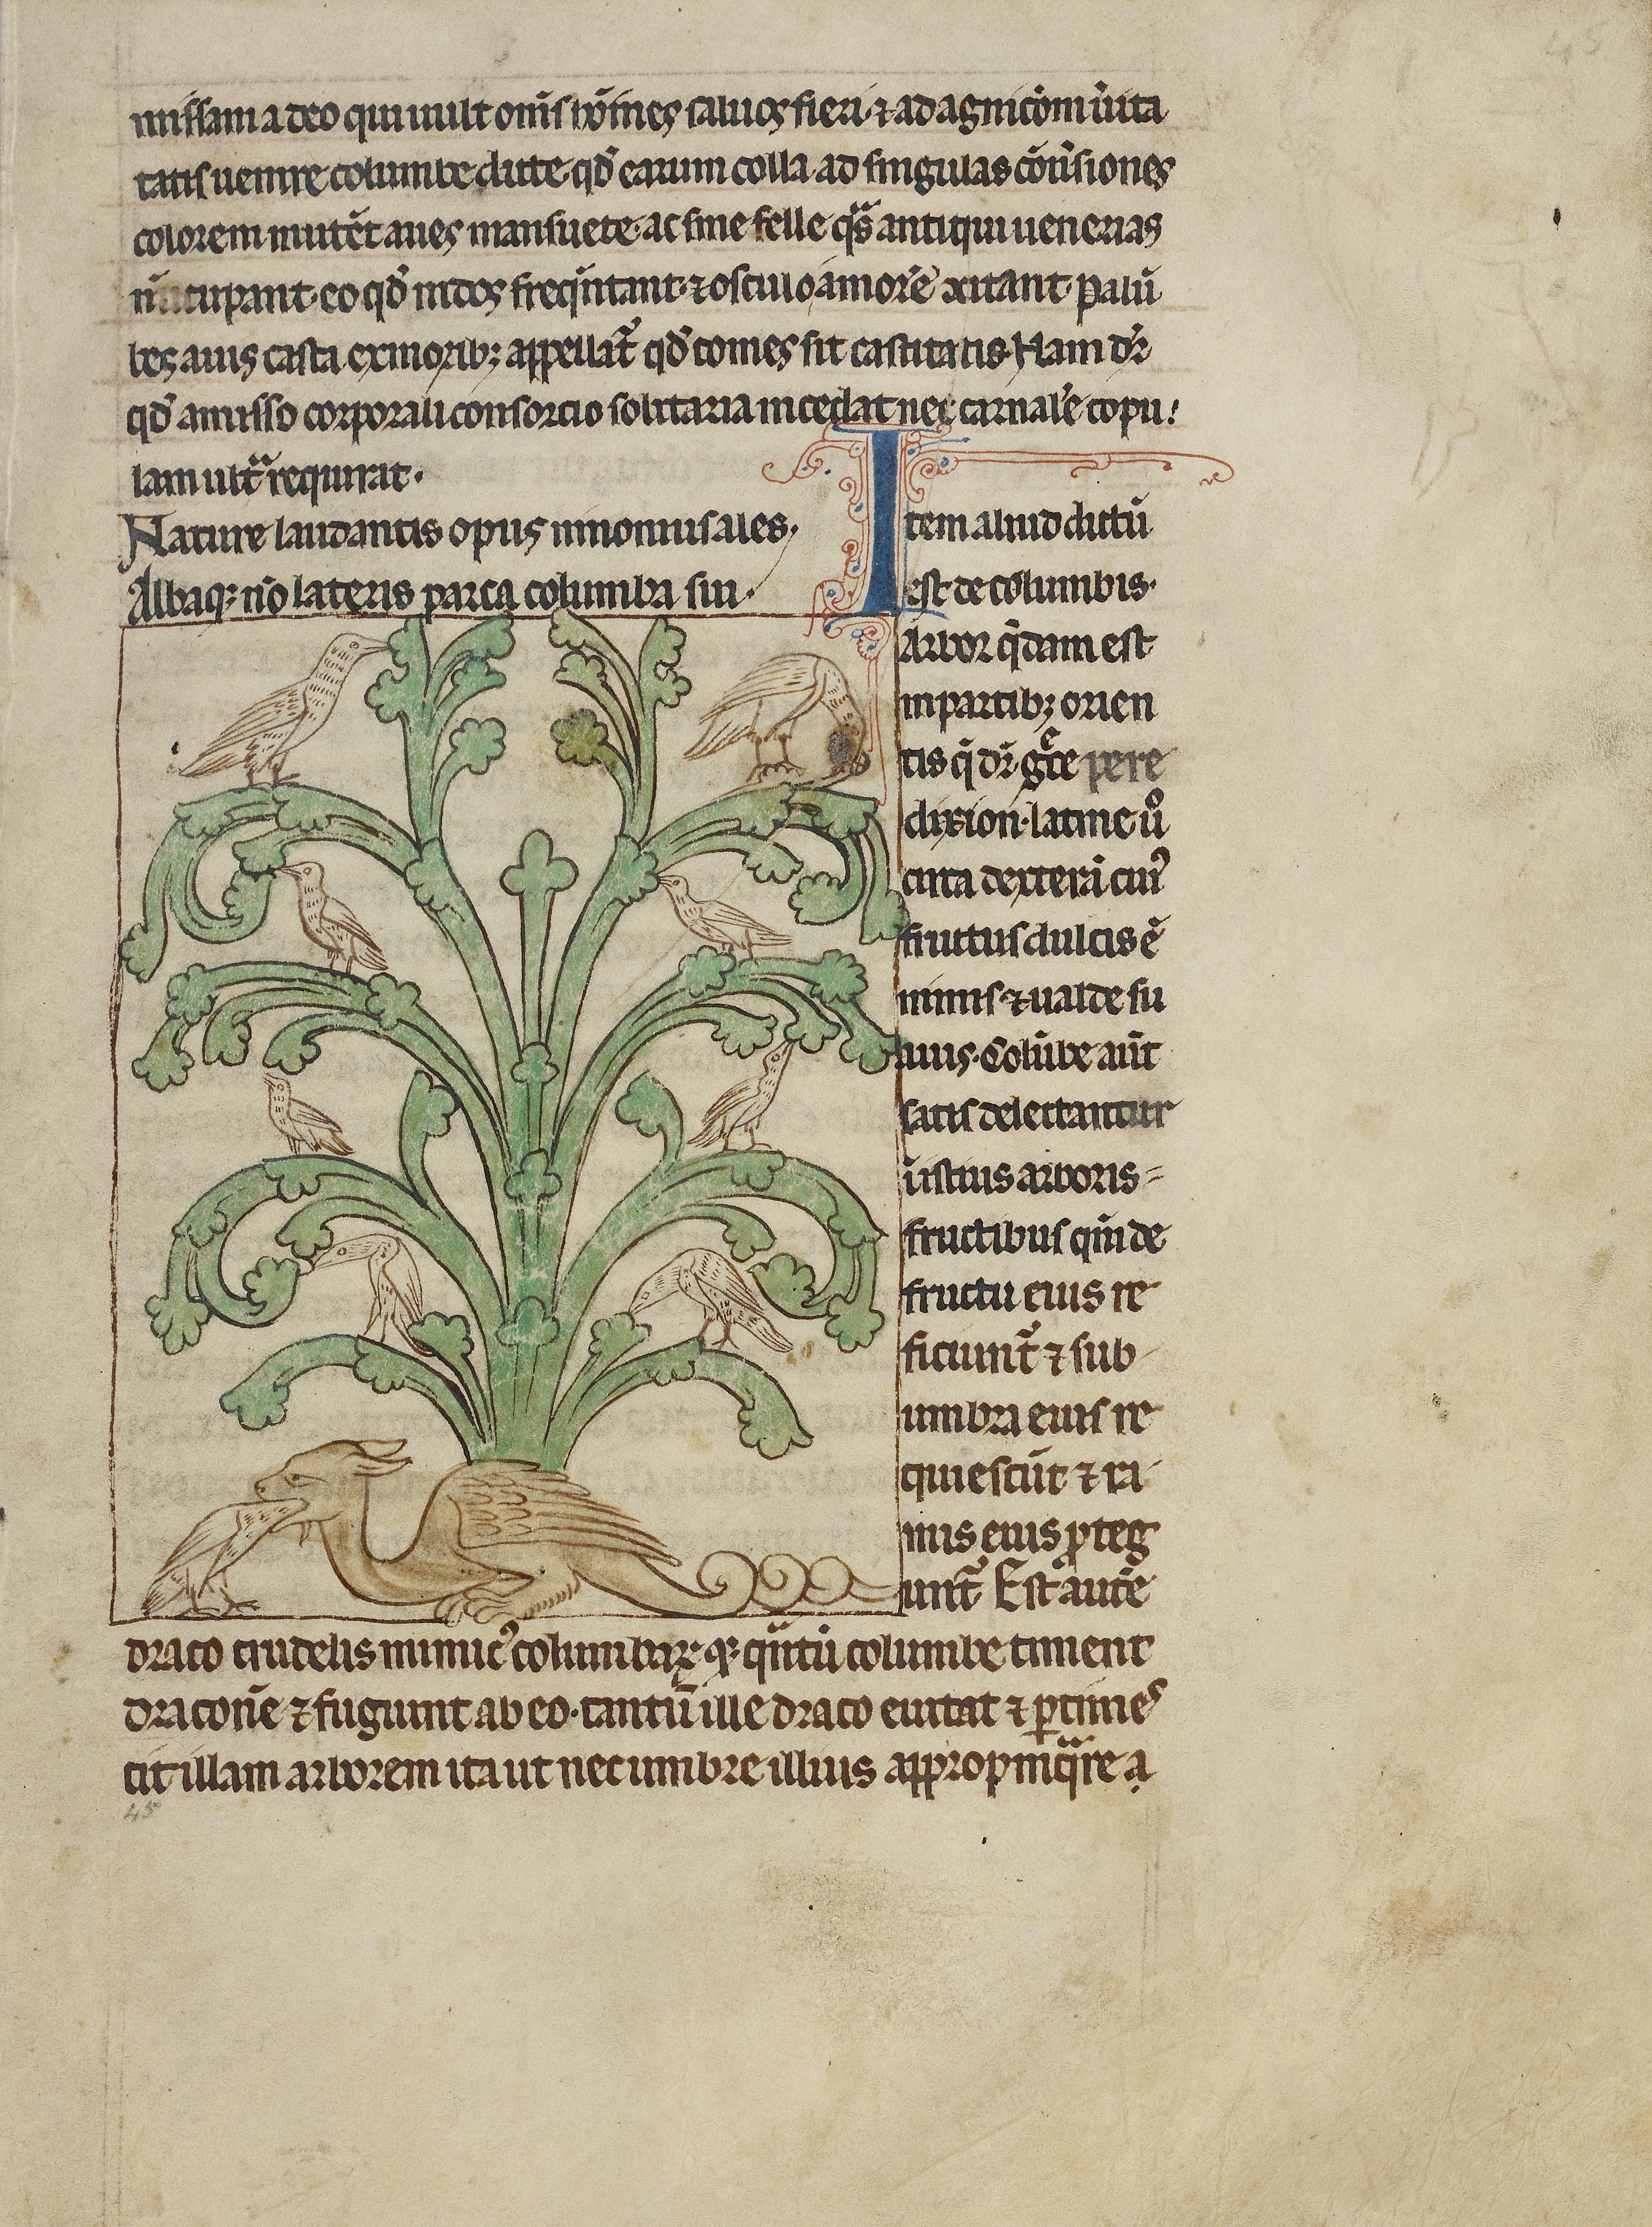 missam a deo qui uult om̄s hōīnes saluos fieri ⁊ ad agnicōm ūita
tatis uenire columbe dicte qd̄ earum colla ad singulas cōūsiones
colorem mutēt aues mansuete ac sine felle qͣs antiqui uenerias
nūcupant eo qd̄ nidos freqūtant ⁊ osculo amorē excitant palū
bes auis casta ex moribꝫ appellat᷑ qd̄ comes sit castitatis Nam dr̄
qd̄ amisso corporali consorcio solitaria incedat nec carnalē copu
lam ultͣ requirat.
Nature laudantis opus ninomus aues.
Albaqꝫ nō lateris parca columba sui.
Item aliud dictū
est de columbis.
Arbor q̄dam est
in partibꝫ orien
tis q̄ dr̄ gͤce pere
dixion. latine ū̊
circa dexterā cuiꝰ
fructus dulcis ē
nimis ⁊ ualde su
auis. Colūbe aūt
satis delectantur
ī istius arboris
fructibus qm̄ de
fructu eius re
ficiunt᷑ ⁊ sub
umbra eius re
quiescūt ⁊ ra
mis eius ꝓteg
unt᷑ Est autē
draco crudelis inimicꝰ columbaꝝ qꝫ qͣntū columbe timent
draconē ⁊ fugiunt ab eo. tantū ille draco euitat ⁊ ꝑtimes
cit illam arborem ita ut nec umbre illius appropinqͣre a
45